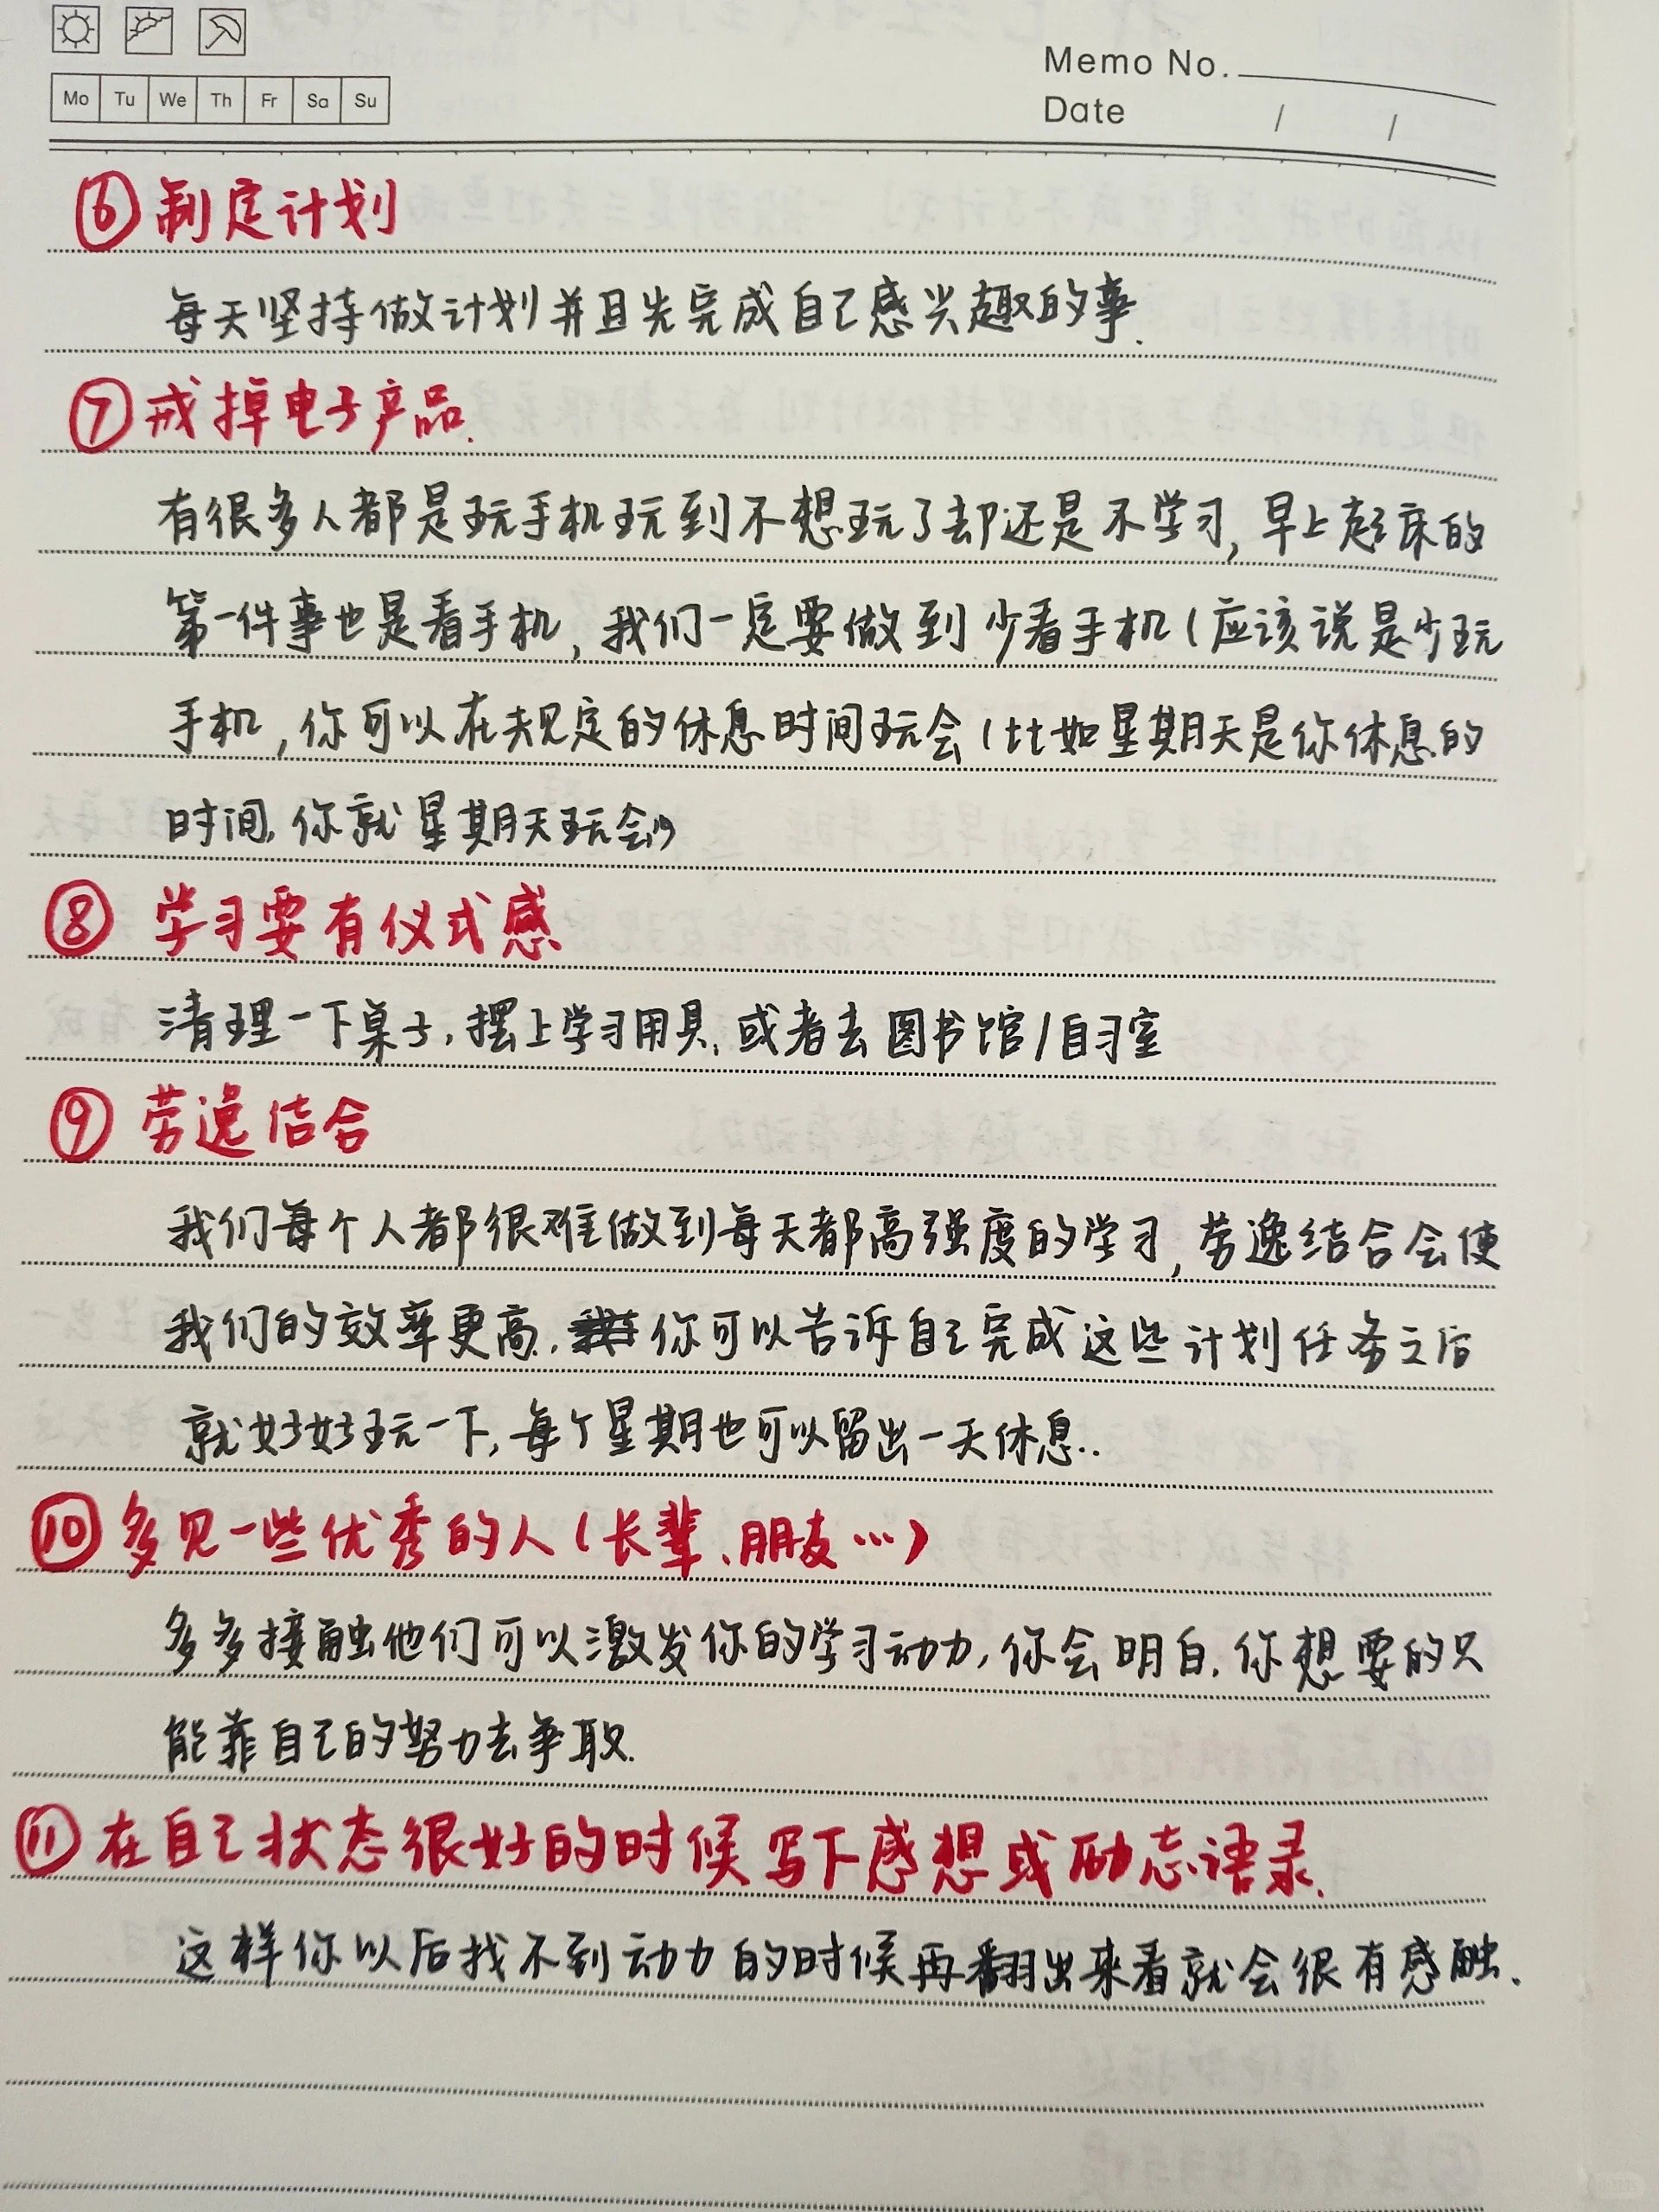 Memo No.
Mo Tu We Th Fr Sa Su
Date / /
⑥制定计划
每天坚持做计划并且先完成自己感兴趣的事.
⑦戒掉电子产品.
有很多人都是玩手机玩到不想玩了却还是不学习,早上起床的
第一件事也是看手机,我们一定要做到少看手机(应该说是少玩
手机,你可以在规定的休息时间玩会(比如星期天是你休息的
时间,你就星期天玩会))
⑧ 学习要有仪式感
清理一下桌子,摆上学习用具,或者去图书馆/自习室
⑨ 劳逸结合
我们每个人都很难做到每天都高强度的学习,劳逸结合会使
我们的效率更高,你可以告诉自己完成这些计划任务之后
就好好玩一下,每个星期也可以留出一天休息..
⑩多见一些优秀的人(长辈、朋友…)
多多接触他们可以激发你的学习动力,你会明白,你想要的只
能靠自己的努力去争取.
⑪在自己状态很好的时候写下感想或励志语录.
这样你以后找不到动力的时候再翻出来看就会很有感触.